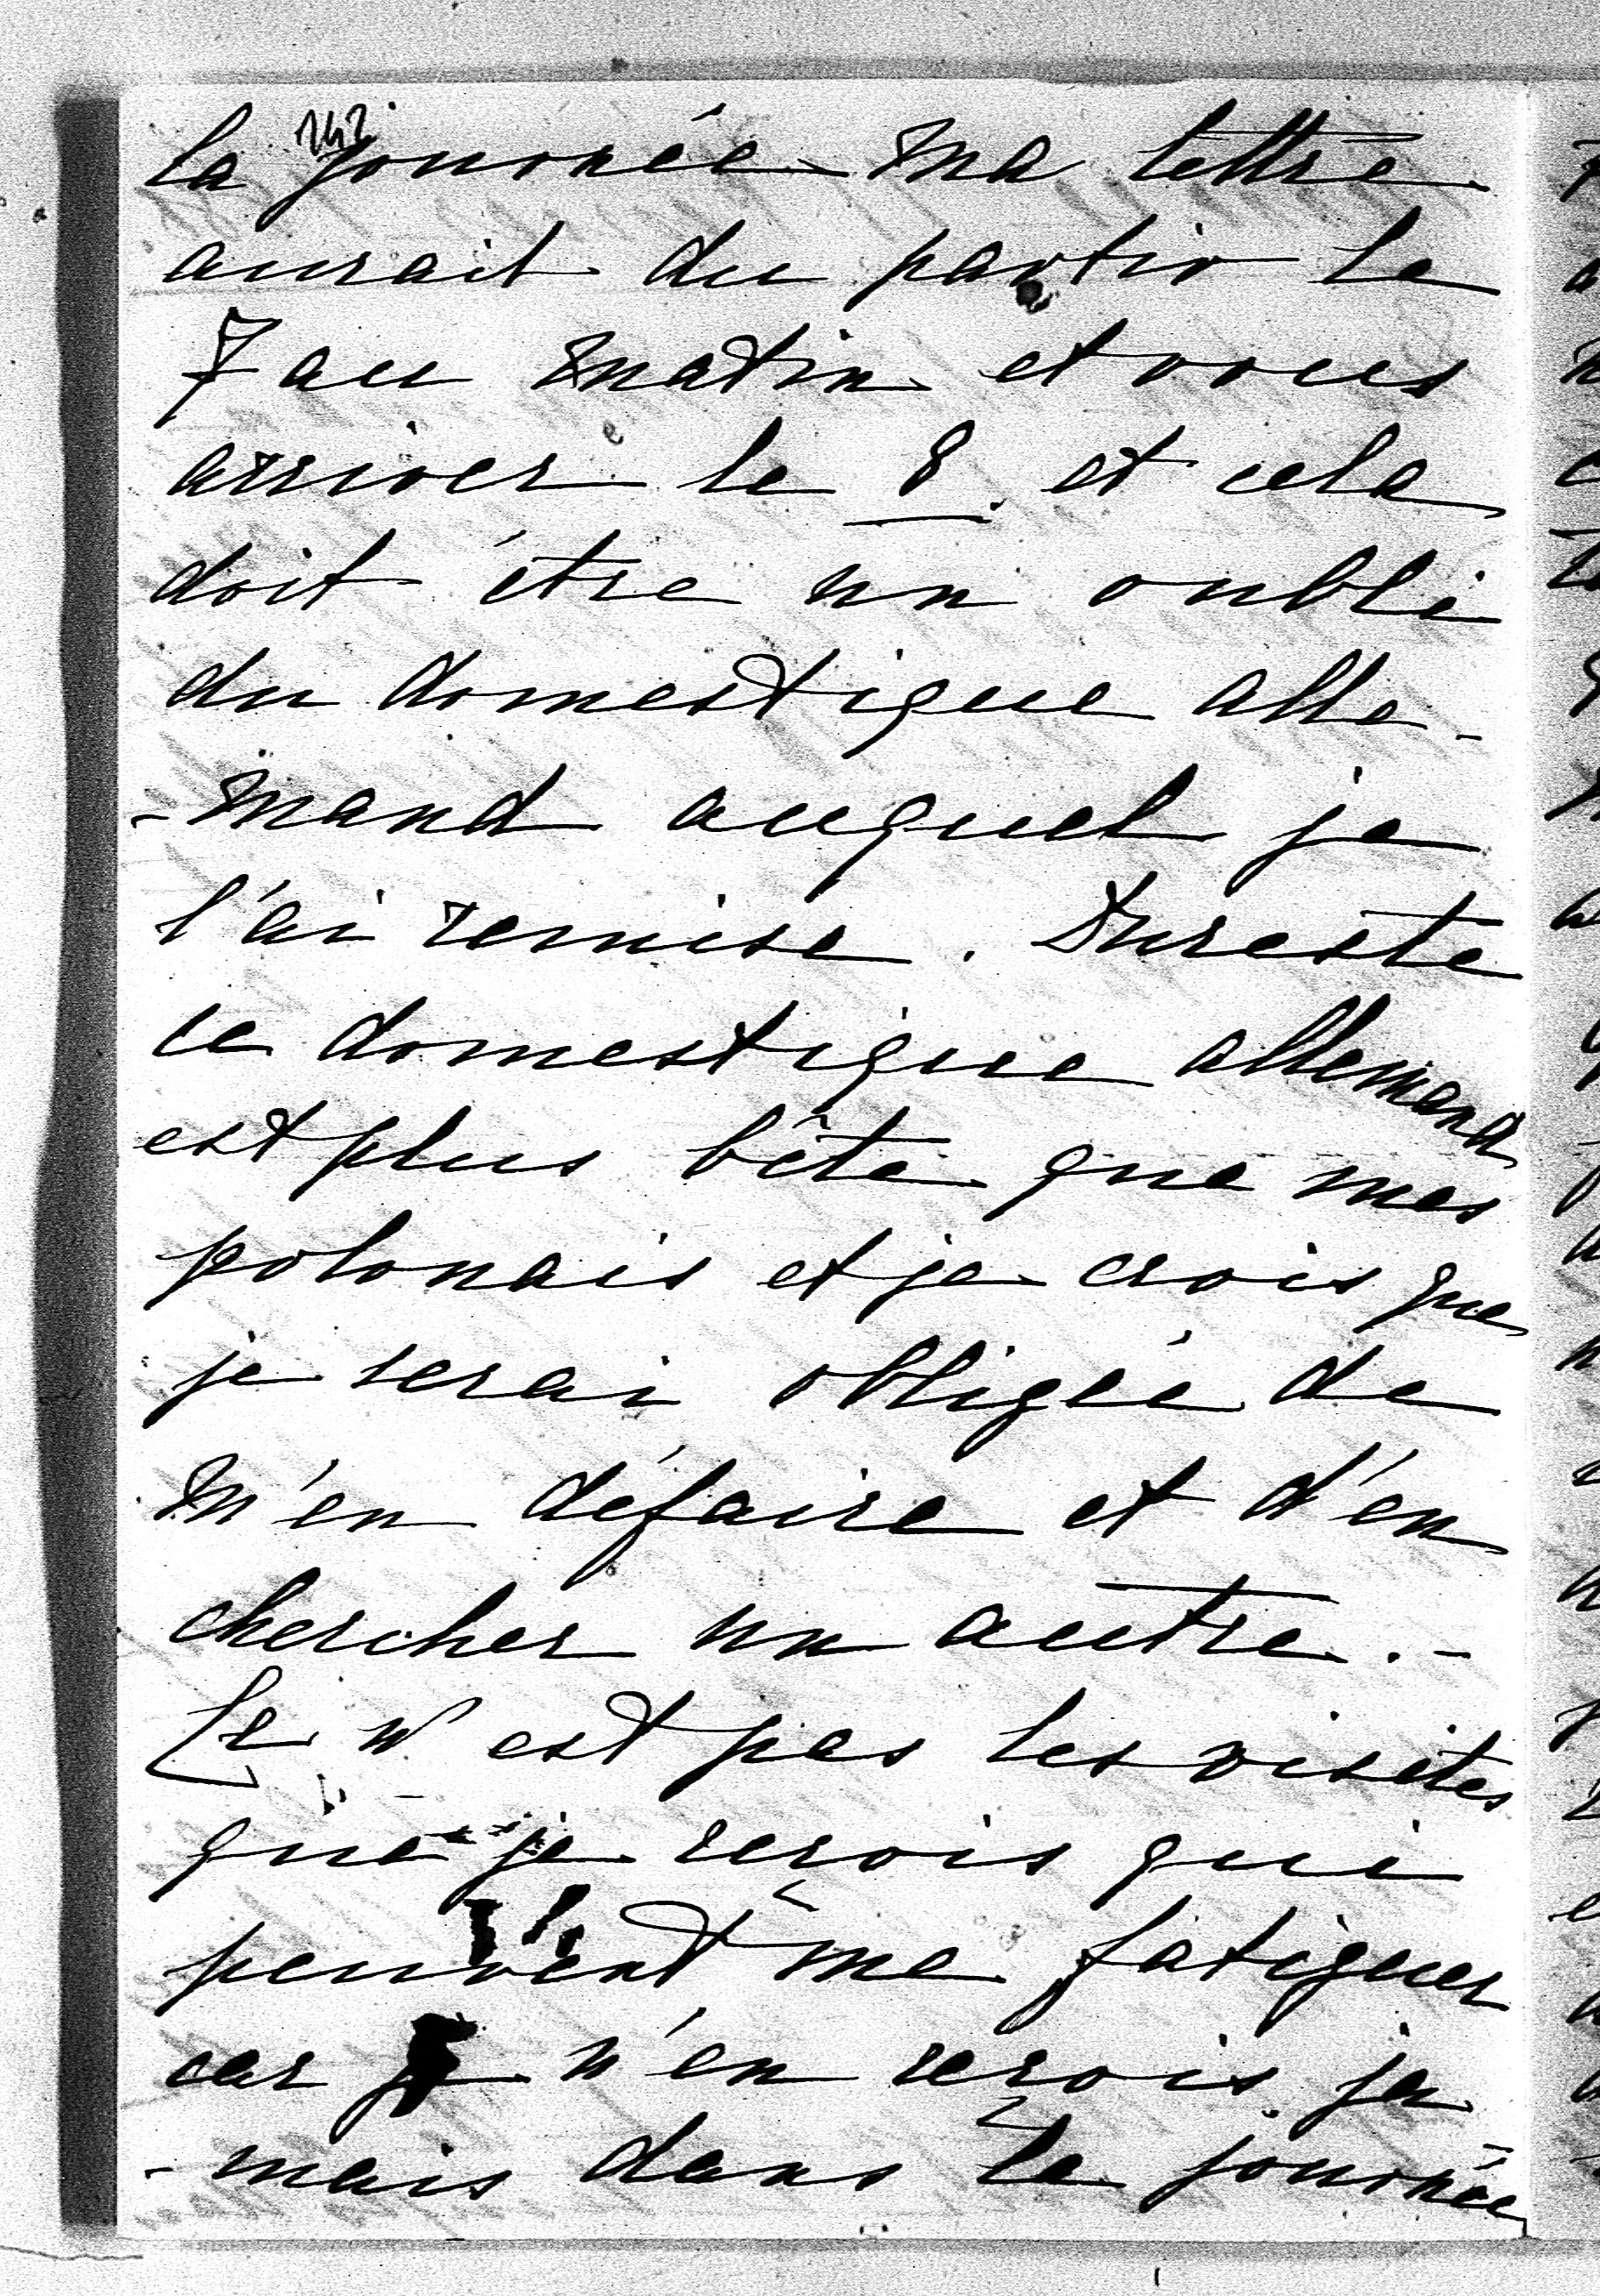 242
la journée ma lettre
aurait du partir le
7 au matin et vous
arriver le 8. et cela
doit être un oubli
du domestique alle-
-mand auquel je
l'ai remise. Dureste
ce domestique allemand
est plus bête que mes
polonais et je crois que
je serai obligée de
m'en défaire et d'en
chercher un autre.-
Ce n'est pas les visites
que je reçois qui
peuvent me fatiguer
car je n'en reçois ja
-mais dans la journée